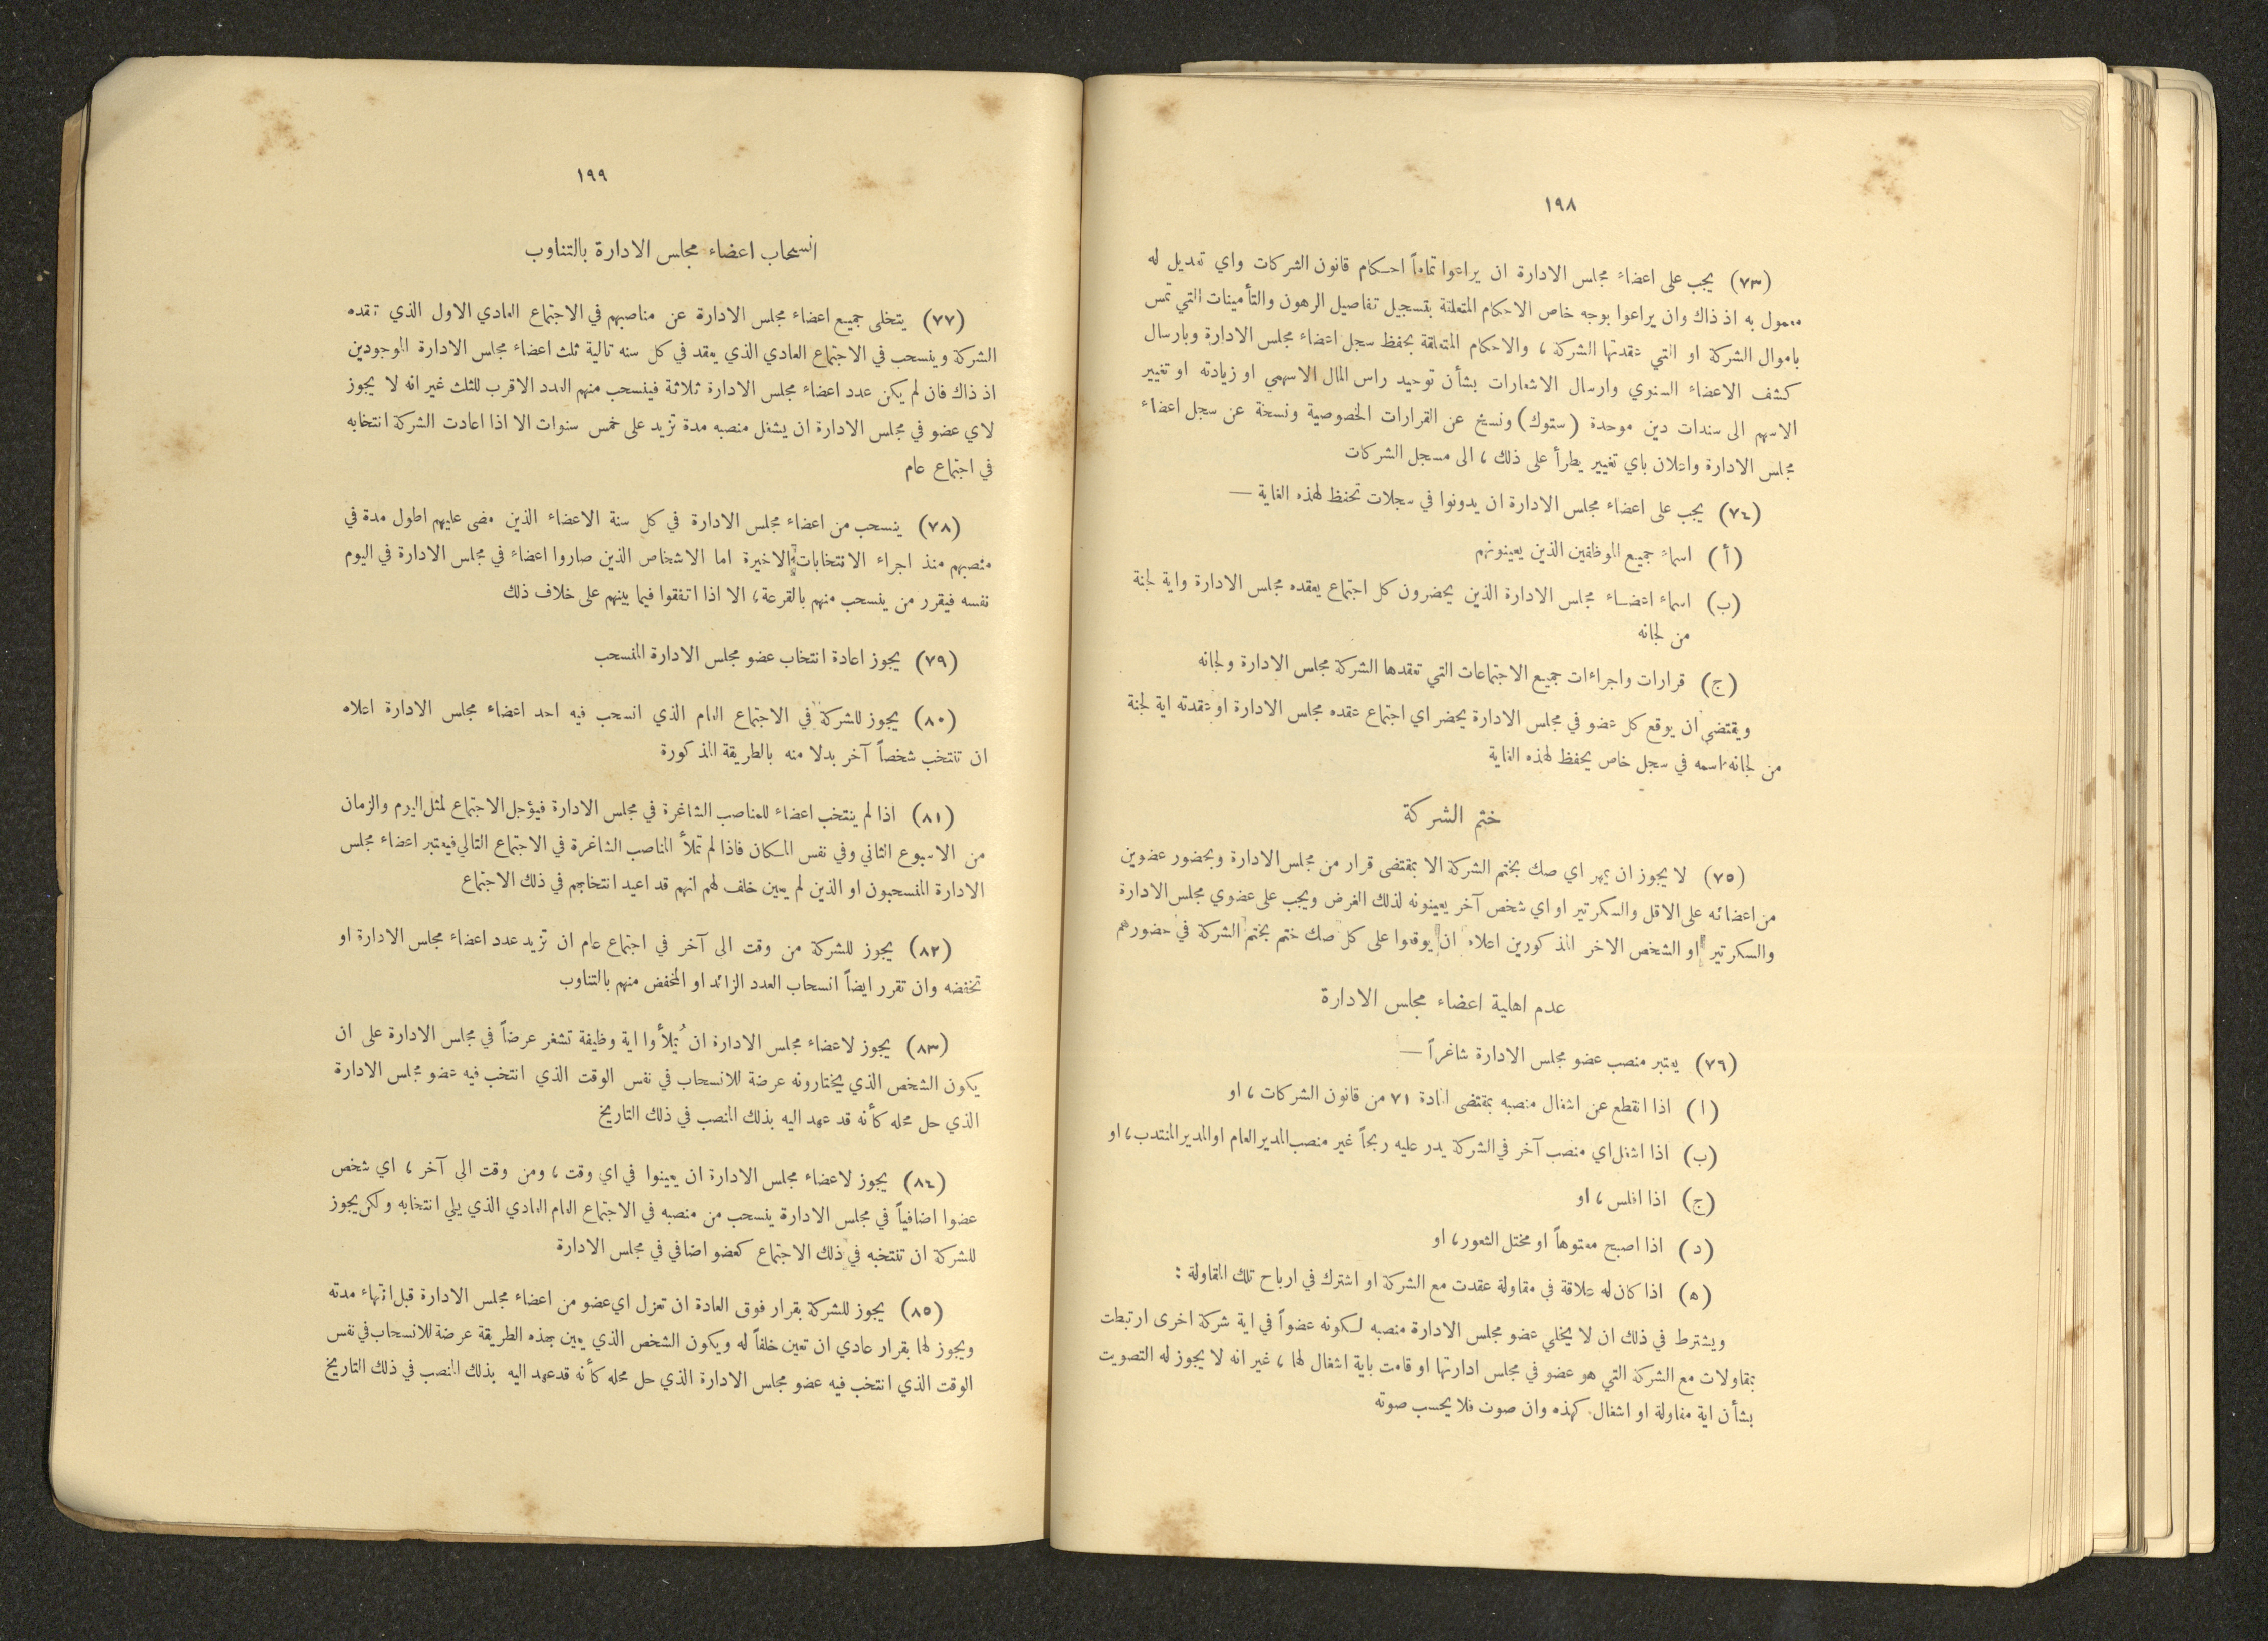 ١٩٨
(٧٣) يجب على اعضاء مجلس الادارة ان يراعوا تماماً احكام قانون الشركات واي تعديل له
معمول به اذ ذاك وان يراعوا بوجه خاص الاحكام المتعلقة بتسجيل تفاصيل الرهون والتأمينات التي تمس
باموال الشركة او التي عقدتها الشركة ، والاحكام المتعلقة بحفظ سجل اعضاء مجلس الادارة وبارسال
كشف الاعضاء السنوي وارسال الاشعارات بشأن توحيد راس المال الاسهمي او زيادته او تغيير
الاسهم الى سندات دين موحدة (ستوك) ونسخ عن القرارات الخصوصية ونسخة عن سجل اعضاء
مجلس الادارة واعلان باي تغيير يطرأ على ذلك ، الى مسجل الشركات
(٧٤) يجب على اعضاء مجلس الادارة ان يدونوا في سجلات تحفظ لهذه الغاية —
(أ) اسماء جميع الموظفين الذين يعينونهم
(ب) اسماء اعضاء مجلس الادارة الذين يحضرون كل اجتماع يعقده مجلس الادارة واية لجنة
من لجانه
(ج) قرارات واجراءات جميع الاجتماعات التي تعقدها الشركة مجلس الادارة ولجانه
ويقتضي ان يوقع كل عضو في مجلس الادارة يحضر اي اجتماع عقده مجلس الادارة او عقدته اية لجنة
من لجانه اسمه في سجل خاص يحفظ لهذه الغاية
ختم الشركة
(٧٥) لا يجوز ان يمهر اي صك بختم الشركة الا بمقتضى قرار من مجلس الادارة وبحضور عضوين
من اعضائه على الاقل والسكرتير او اي شخص آخر يعينونه لذلك الغرض ويجب على عضوي مجلس الادارة
والسكرتير او الشخص الاخر المذكورين اعلاه ان يوقعوا على كل صك ختم بختم الشركة في حضورهم
عدم اهلية اعضاء مجلس الادارة
(٧٦) يعتبر منصب عضو مجلس الادارة شاغراً —
(ا) اذا انقطع عن اشغال منصبه بمقتضى المادة ٧١ من قانون الشركات ، او
(ب) اذا اشغل اي منصب آخر في الشركة يدر عليه ربحاً غير منصب المدير العام او المدير المنتدب ، او
(ج) اذا افلس ، او
(د) اذا اصبح معتوهاً او مختل الشعور ، او
(ه) اذا كان له علاقة في مقاولة عقدت مع الشركة او اشترك في ارباح تلك المقاولة :
ويشترط في ذلك ان لا يخلي عضو مجلس الادارة منصبه لكونه عضواً في اية شركة اخرى ارتبطت
بمقاولات مع الشركة التي هو عضو في مجلس ادارتها او قامت باية اشغال لها ، غير انه لا يجوز له التصويت
بشأن اية مقاولة او اشغال كهذه وان صوت فلا يحسب صوته
١٩٩
انسحاب اعضاء مجلس الادارة بالتناوب
(٧٧) يتخلى جميع اعضاء مجلس الادارة عن مناصبهم في الاجتماع العادي الاول الذي تعقده
الشركة وينسحب في الاجتماع العادي الذي يعقد في كل سنه تالية ثلث اعضاء مجلس الادارة الموجودين
اذ ذاك فان لم يكن عدد اعضاء مجلس الادارة ثلاثة فينسحب منهم العدد الاقرب للثلث غير انه لا يجوز
لاي عضو في مجلس الادارة ان يشغل منصبه مدة تزيد على خمس سنوات الا اذا اعادت الشركة انتخابه
في اجتماع عام
(٧٨) ينسحب من اعضاء مجلس الادارة في كل سنة الاعضاء الذين مضى عليهم اطول مدة في
منصبهم منذ اجراء الانتخابات الاخيرة اما الاشخاص الذين صاروا اعضاء في مجلس الادارة في اليوم
نفسه فيقرر من ينسحب منهم بالقرعة ، الا اذا اتفقوا فيما بينهم على خلاف ذلك
(٧٩) يجوز اعادة انتخاب عضو مجلس الادارة المنسحب
(٨٠) يجوز للشركة في الاجتماع العام الذي انسحب فيه احد اعضاء مجلس الادارة اعلاه
ان تنتخب شخصاً آخر بدلا منه بالطريقة المذكورة
(٨١) اذا لم ينتخب اعضاء للمناصب الشاغرة في مجلس الادارة فيؤجل الاجتماع لمثل اليوم والزمان
من الاسبوع الثاني وفي نفس المكان فاذا لم تملأ المناصب الشاغرة في الاجتماع التالي فيعتبر اعضاء مجلس
الادارة المنسحبون او الذين لم يعين خلف لهم انهم قد اعيد انتخابهم في ذلك الاجتماع
(٨٢) يجوز للشركة من وقت الى آخر في اجتماع عام ان تزيد عدد اعضاء مجلس الادارة او
تخفضه وان تقرر ايضاً انسحاب العدد الزائد او المخفض منهم بالتناوب
(٨٣) يجوز لاعضاء مجلس الادارة ان يُملأوا اية وظيفة تشغر عرضاً في مجلس الادارة على ان
يكون الشخص الذي يختارونه عرضة للانسحاب في نفس الوقت الذي انتخب فيه عضو مجلس الادارة
الذي حل محله كأنه قد عهد اليه بذلك المنصب في ذلك التاريخ
(٨٤) يجوز لاعضاء مجلس الادارة ان يعينوا في اي وقت ، ومن وقت الى آخر ، اي شخص
عضوا اضافياً في مجلس الادارة ينسحب من منصبه في الاجتماع العام العادي الذي يلي انتخابه ولكن يجوز
للشركة ان تنتخبه في ذلك الاجتماع كعضو اضافي في مجلس الادارة
(٨٥) يجوز للشركة بقرار فوق العادة ان تعزل اي عضو من اعضاء مجلس الادارة قبل انتهاء مدته
ويجوز لها بقرار عادي ان تعين خلفاً له ويكون الشخص الذي يعين بهذه الطريقة عرضة للانسحاب في نفس
الوقت الذي انتخب فيه عضو مجلس الادارة الذي حل محله كأنه قد عهد اليه بذلك المنصب في ذلك التاريخ